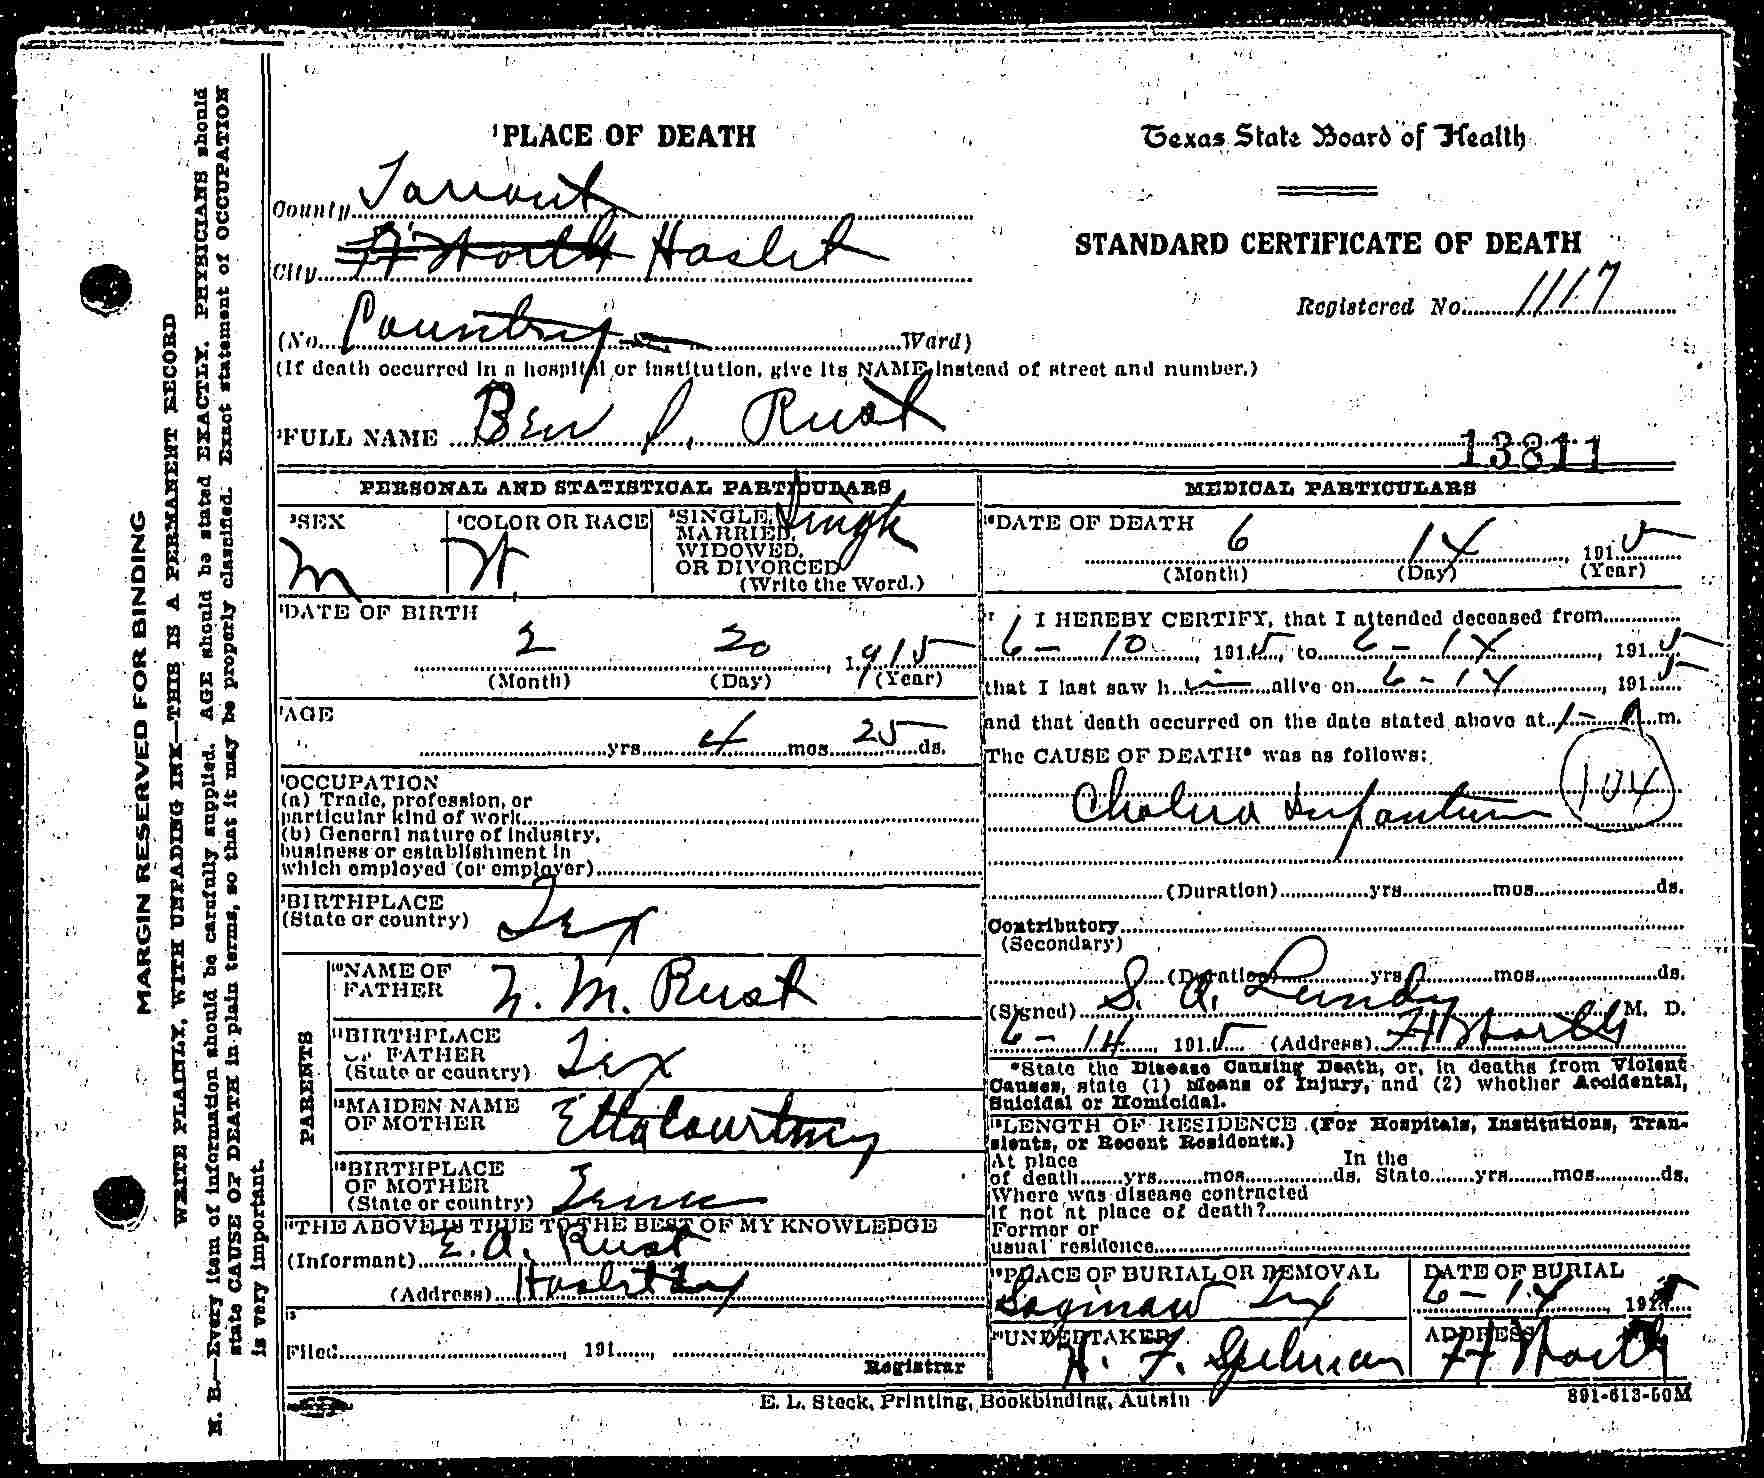 MARGIN RESERVED FOR BINDING
WRITE PLAINLY, WITH UNFADING INK—THIS IS A PERMANENT RECORD
N. B.—Every item of information should be carefully supplied. AGE should be stated EXACTLY. PHYSICIANS should
state CAUSE OF DEATH in plain terms, so that it may be properly classified. Exact statement of OCCUPATION
is very important.
1PLACE OF DEATH
County Tarrant
City Ft Worth Haslet
(No. Country Ward)
(If death occurred in a hospital or institution, give its NAME instead of street and number.)
Texas State Board of Health
STANDARD CERTIFICATE OF DEATH
Registered No. 1117
2FULL NAME Ben J. Rust
13811
PERSONAL AND STATISTICAL PARTICULARS
3SEX
M
4COLOR OR RACE
W.
5SINGLE, Single
MARRIED,
WIDOWED,
OR DIVORCED
(Write the Word.)
6DATE OF BIRTH
2 20, 1915
(Month) (Day) (Year)
7AGE
yrs. 4 mos. 25 ds.
8OCCUPATION
(a) Trade, profession, or
particular kind of work
(b) General nature of industry,
business or establishment in
which employed (or employer)
9BIRTHPLACE
(State or country) Tex
PARENTS
10NAME OF
FATHER N. M. Rust
11BIRTHPLACE
OF FATHER
(State or country) Tex
12MAIDEN NAME
OF MOTHER Etta Courtney
13BIRTHPLACE
OF MOTHER
(State or country) Tenn
14THE ABOVE IS TRUE TO THE BEST OF MY KNOWLEDGE
(Informant) E. A. Rust
(Address) Haslet Tex
15
Filed, 191,
Registrar
MEDICAL PARTICULARS
16DATE OF DEATH
6 14, 1915
(Month) (Day) (Year)
17 I HEREBY CERTIFY, that I attended deceased from
6 - 10, 1915, to 6 - 14, 1915
that I last saw h im alive on 6 - 14, 1915
and that death occurred on the date stated above at 1- A m.
The CAUSE OF DEATH* was as follows:
Cholera Infantum 104
(Duration) yrs. mos. ds.
Contributory
(Secondary)
(Duration) yrs. mos. ds.
(Signed) S. A. Lundy M. D.
6 - 14, 1915 (Address) Ft Worth
*State the Disease Causing Death, or, in deaths from Violent
Causes, state (1) Means of Injury, and (2) whether Accidental,
Suicidal or Homicidal.
18LENGTH OF RESIDENCE (For Hospitals, Institutions, Tran-
sients, or Recent Residents.)
At place In the
of death yrs. mos. ds. State yrs. mos. ds.
Where was disease contracted
if not at place of death?
Former or
usual residence
19PLACE OF BURIAL OR REMOVAL
Saginaw Tex
DATE OF BURIAL
6 - 14, 1915
20UNDERTAKER
H. F. Spelman
ADDRESS
Ft Worth
E. L. Steck, Printing, Bookbinding, Autsin
891-613-50M